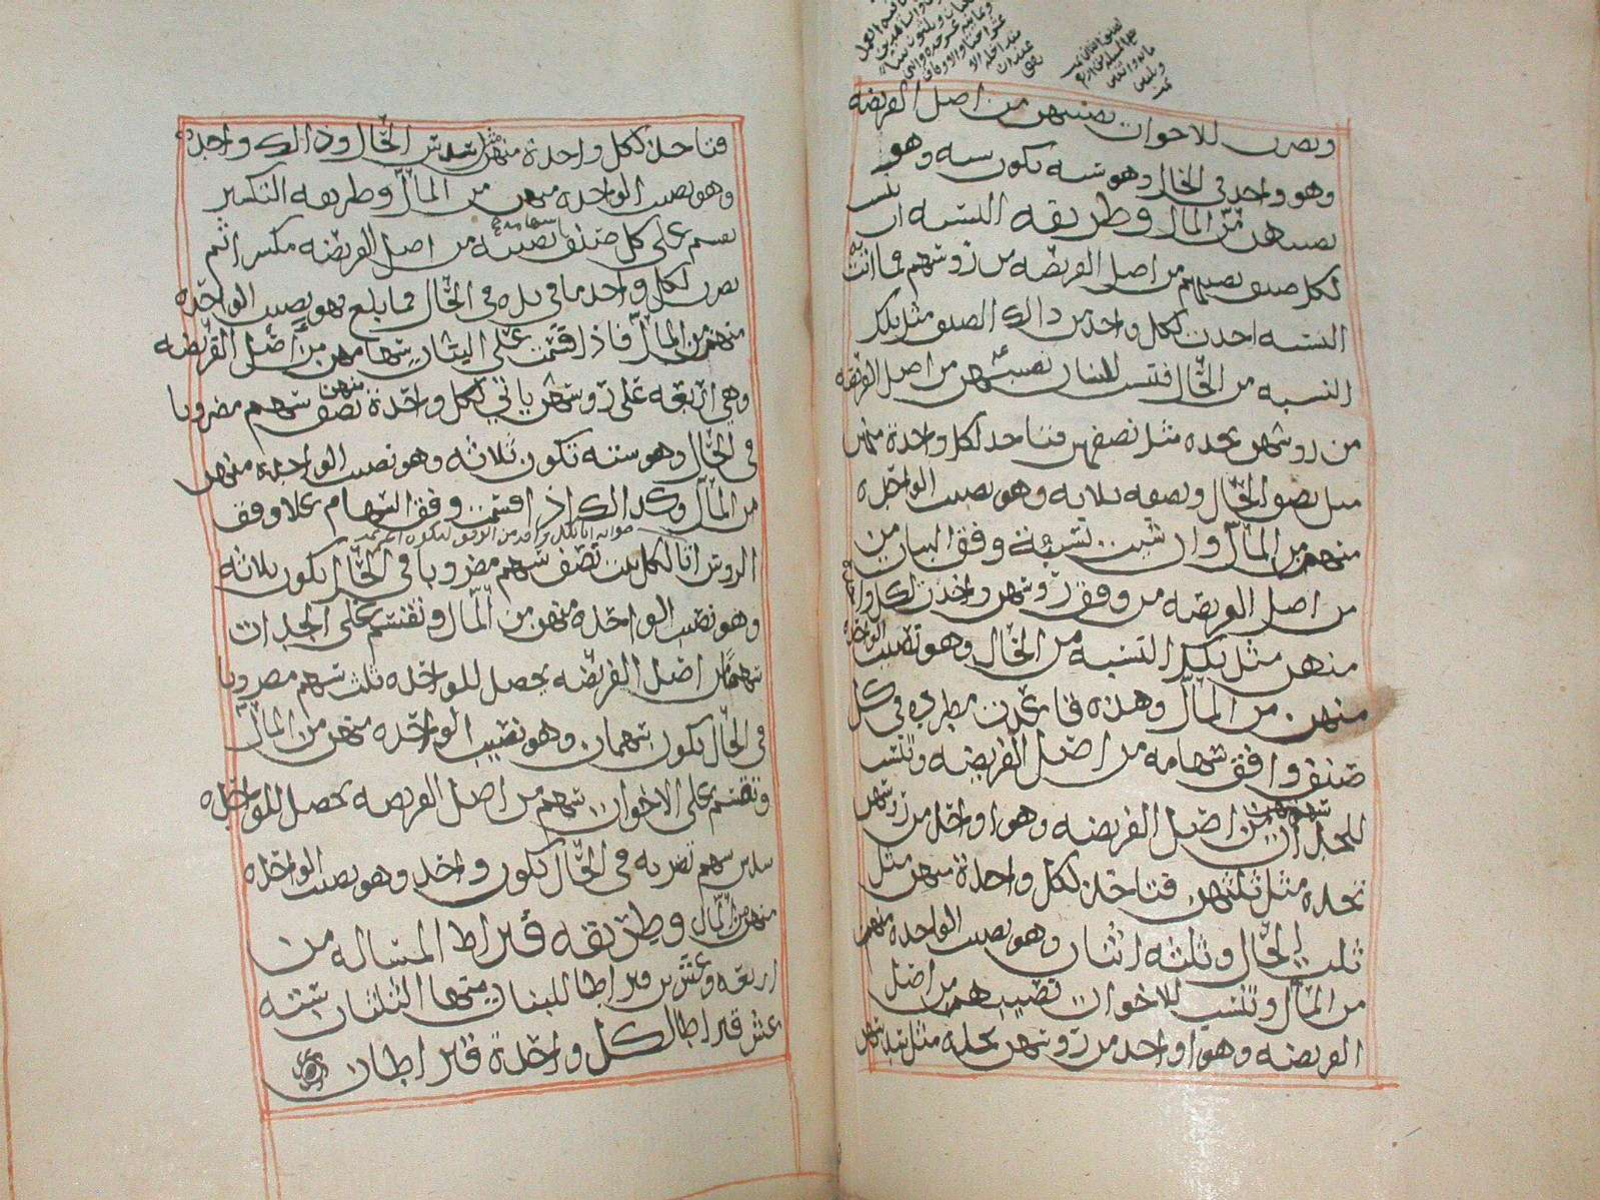 وتضرب للاخوات نصيبهن من اصل الفريضه
وهو واحد في الحال وهو سته تكون سته وهو
نصيبهن من المال وطريقه النسبه ان تنسب
لكل صنف نصيبهم من اصل الفريضه من روسهم فما اتت به
النسبه اخذت لكل واحد من ذالك الصنف مثل تلك
النسبه من الحال فتنسب للبنات نصيبهن من اصل الفريضه
من روسهن تجده مثل نصفهن فتاخذ لكل واحدة منهن
مثل نصف الحال ونصفه ثلاثه وهو نصيب الواحده
منهن من المال وان شئت نسبة وفق البنات من
من اصل الفريضه من وفق روسهن واخذت لكل واحدة
منهن مثل تلك النسبه من الحال وهو نصيب الواحده
منهن من المال وهذه قاعدة مطرده في كل
صنف وافق سهامه من اصل الفريضه وتنسب
للجدات سهمهن من اصل الفريضه وهو واحد من روسهن
تجده مثل ثلثهن فتاخذ لكل واحدة منهن مثل
ثلث الحال وثلثه اثنان وهو نصيب الواحده منهن
من المال وتنسب للاخوات نصيبهن من اصل
الفريضه وهو واحد من روسهن تجده مثل سدسهن
فتاخذ لكل واحدة منهن مثل سدس الحال وذالك واحد
وهو نصيب الواحده منهن من المال وطريقه التكسير
تقسم على كل صنف نصيبه من اصل الفريضه مكسرا ثم
تضرب لكل واحد ما في يده في الحال فما بلغ فهو نصيب الواحده
منهن من المال فاذا قسمت على البنات سهامهن من اصل الفريضه
وهي اربعه على روسهن ياتي لكل واحدة منهن نصف سهم مضروبا
في الحال وهو سته تكون ثلاثه وهو نصيب الواحدة منهن
من المال وكذالك اذا قسمت وفق السهام على وفق
الروس اتا لكل بنت نصف سهم مضروبا في الحال يكون ثلاثه
وهو نصيب الواحده منهن من المال وتقسم على الجدات
سهما من اصل الفريضه يحصل للواحده ثلث سهم مضروبا
في الحال يكون سهمان وهو نصيب الواحده منهن من المال
وتقسم على الاخوات سهم من اصل الفريضه يحصل للواحده
سدس سهم تضربه في الحال يكون واحد وهو نصيب الواحده
منهن من المال وطريقه قيراط المساله من
اربعه وعشرين قيراطا للبنات منها الثلثان سته
عشر قيراطا لكل واحدة قيراطان